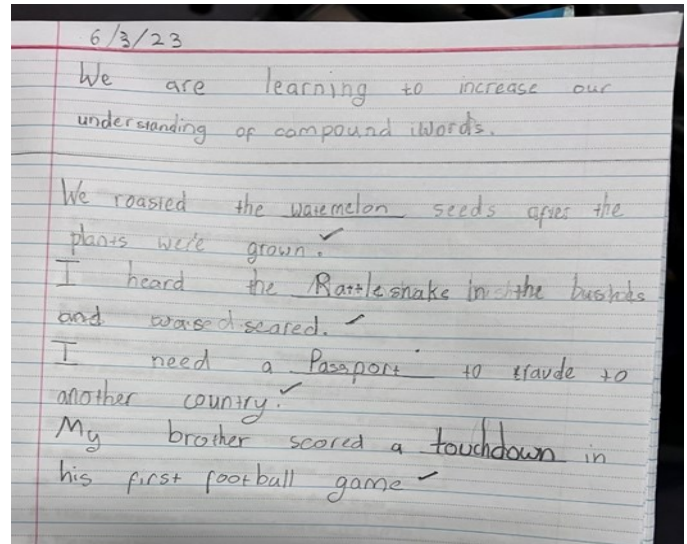 6/3/23
We are learning to increase our
understanding of compound words.
We roasted the watemelon seeds after the
plants were grown.
I heard the Rattlesnake in the
and scared.
I need a Passport to to
another country.
My brother scored a touchdown in
his first football game